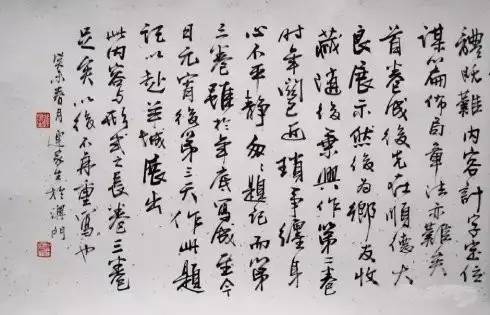 體既難內容計字定位
謀篇佈局章法亦難矣
首卷成後先在順德大
良展示然後為鄉友收
藏隨後乘興作第二卷
时年關已近瑣事纏身
心不平静匆匆題記而第
三卷雖於年底寫成至今
日元宵後第三天作此題
記以赴羊城展出
此内容与形式之長卷三卷
足矣以後不再重寫也
癸未春月連家生於澳門